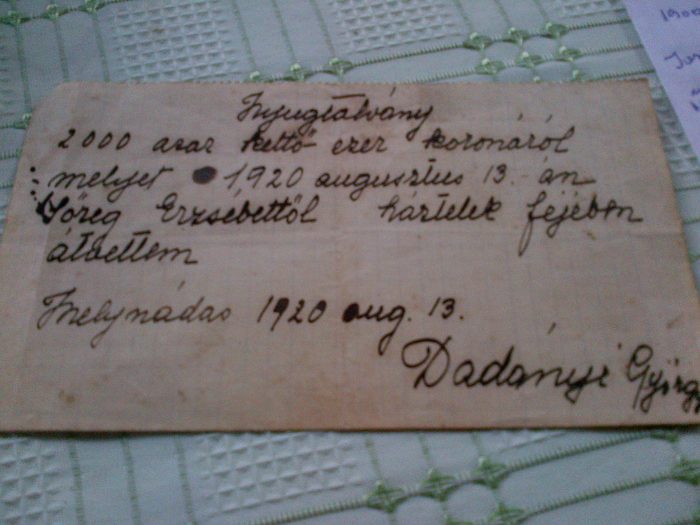 Nyugtatvány
2000 azaz kettő ezer koronáról
melyet 1920 augusztus 13.-án
Vőreg Erzsébettől háztelek fejében
átvettem
Mélynádas 1920 aug. 13.
Dadányi György
1900